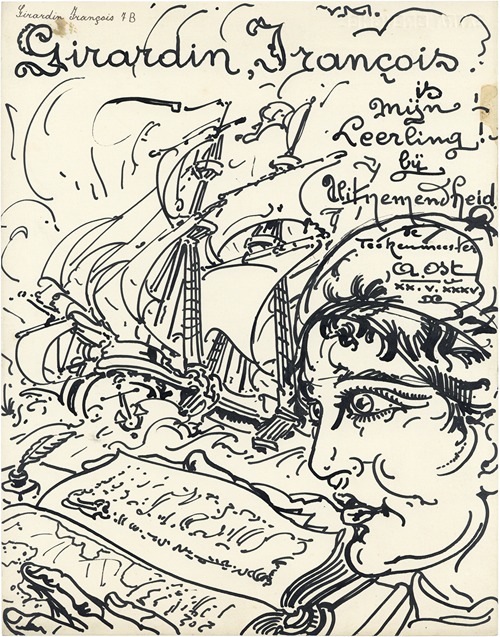 Girardin François 7B
Girardin, François.
is
mijn
Leerling!
bij
Uitnemendheid
de
Teekenmeester
A. Ost
XX. V. XXXV